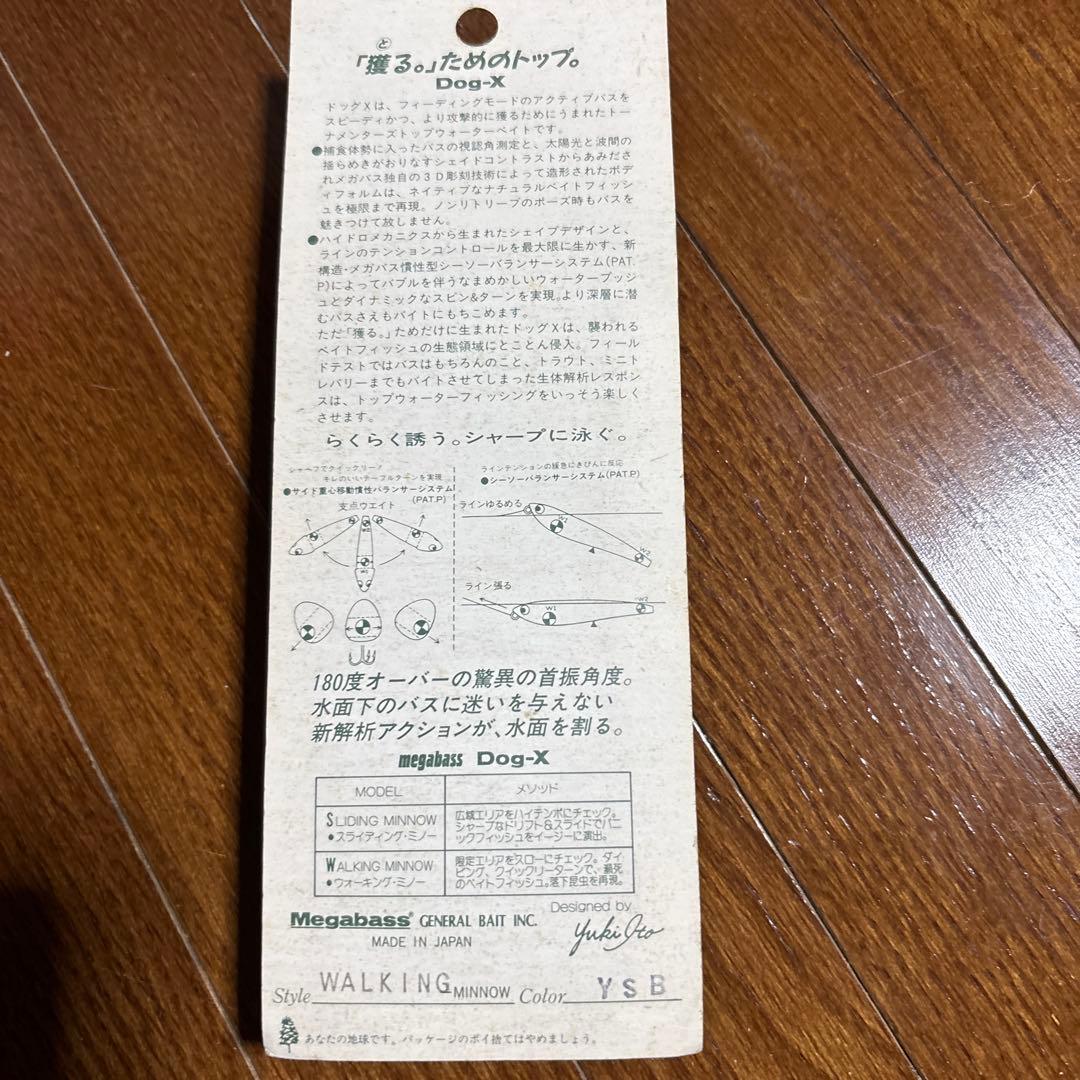 と
「獲る。」ためのトップ。
Dog-X
ドッグXは、フィーディングモードのアクティブバスを
スピーディかつ、より攻撃的に獲るためにうまれたトー
ナメンターズトップウォーターベイトです。
●捕食体勢に入ったバスの視認角測定と、太陽光と波間の
揺らめきがおりなすシェイドコントラストからあみださ
れメガバス独自の3D彫刻技術によって造形されたボデ
ィフォルムは、ネイティブなナチュラルベイトフィッシ
ュを極限まで再現。ノンリトリーブのポーズ時もバスを
魅きつけて放しません。
●ハイドロメカニクスから生まれたシェイプデザインと、
ラインのテンションコントロールを最大限に生かす、新
構造・メガバス慣性型シーソーバランサーシステム(PAT.
P)によってバブルを伴うなまめかしいウォータープッシ
ュとダイナミックなスピン&ターンを実現。より深層に潜
むバスさえもバイトにもちこめます。
ただ「獲る。」ためだけに生まれたドッグXは、襲われる
ベイトフィッシュの生態領域にとことん侵入。フィール
ドテストではバスはもちろんのこと、トラウト、ミニト
レバリーまでもバイトさせてしまった生体解析レスポン
スは、トップウォーターフィッシングをいっそう楽しく
させます。
らくらく誘う。シャープに泳ぐ。
シャープでクイックリーな
キレのいいテーブルターンを実現
●サイド重心移動慣性バランサーシステム
(PAT.P)
支点ウエイト
W1
ラインテンションの緩急にきびんに反応
●シーソーバランサーシステム(PAT.P)
ラインゆるめる
W1
W2
ライン張る
W1
W2
180度オーバーの驚異の首振角度。
水面下のバスに迷いを与えない
新解析アクションが、水面を割る。
megabass Dog-X
MODEL メソッド
SLIDING MINNOW
●スライディング・ミノー
広域エリアをハイテンポにチェック。
シャープなドリフト&スライドでパニ
ックフィッシュをイージーに演出。
WALKING MINNOW
●ウォーキング・ミノー
限定エリアをスローにチェック。ダイ
ビング、クイックリーターンで、瀕死
のベイトフィッシュ。落下昆虫を再現。
Designed by
Yuki Ito
Megabass® GENERAL BAIT INC.
MADE IN JAPAN
Style WALKING MINNOW Color YSB
あなたの地球です。パッケージのポイ捨てはやめましょう。